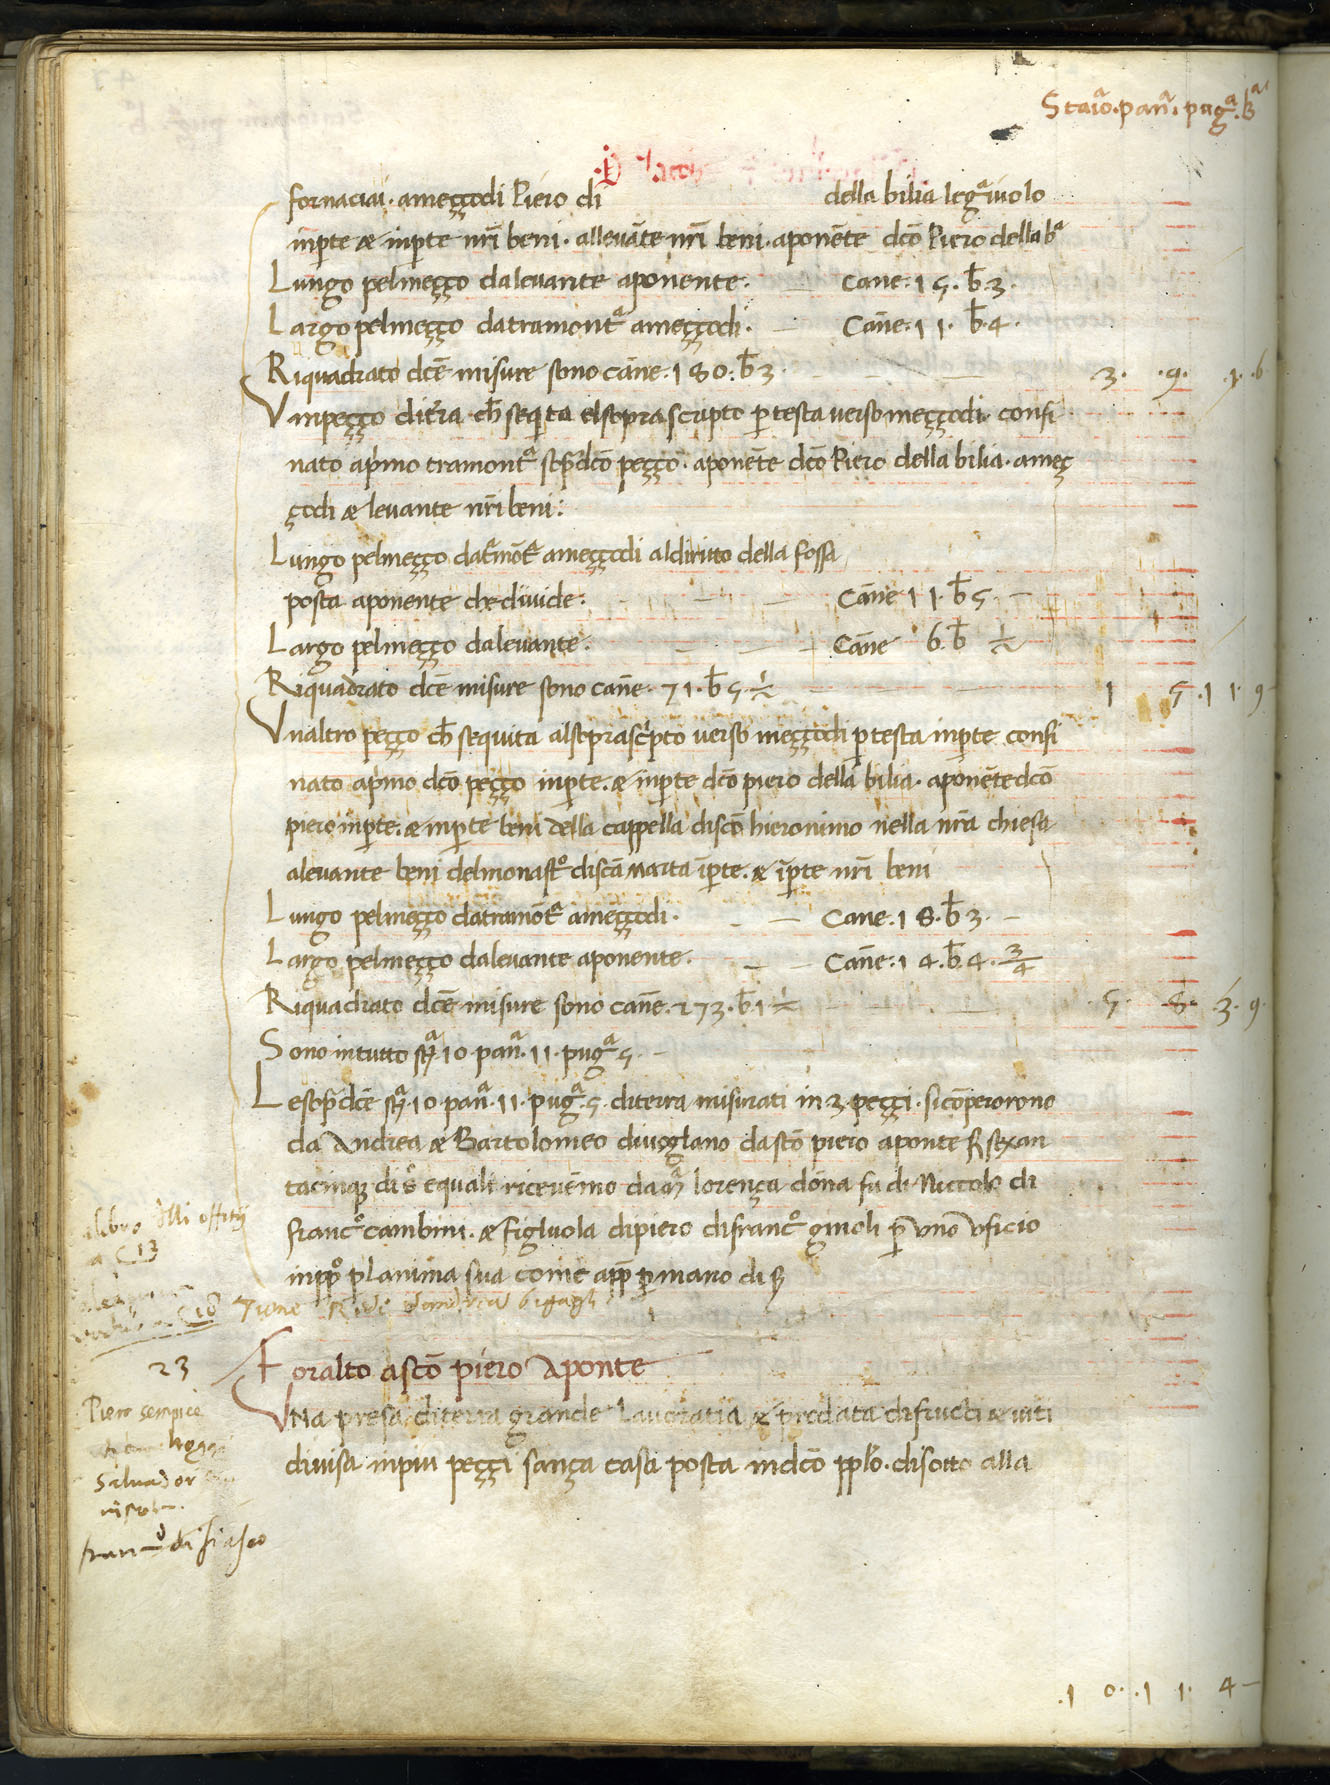 Staioª. panª. pugª. bª
fornaciai. ameççodi Piero di della bilia legªiuolo
inpte & inpte nr̄i beni. allevāte nr̄i beni. aponēte dc̄o Piero della bª
Lungo pelmeçço dalevante aponente. Cane. 15. b̄. 3.
Largo pelmeçço datramontª ameççodi. Cañe. 11. b̄. 4.
Riquadrato dc̄e misure sono cāne. 180. b̄ 3. 3. .9. .1. .6
Vnpeçço diterra ch̄ seq̄ta elsoprascripto p testa verso meççodi. confi
nato apimo tramontª sop̄dc̄o peçço. aponēte dc̄o Piero della bilia. ameç
çodi & levante nr̄i beni:
Lungo pelmeçço datrmōtª ameççodi aldiritto della fossa
posta aponente che divide. Cāne 11. b̄ 5.
Largo pelmeçço dalevante. Cāne 6. b̄ ½
Riquadrato dc̄e misure sono cañe. 71. b̄ 5. ½ 1 5. 11. 9
Vnaltro peçço ch̄ sequita alsoprascrīpto verso meççodi p testa inpte confi
nato apimo dc̄o peçço inpte. & inpte dc̄o piero della bilia. aponēte dc̄o
piero inpte. & inpte beni della cappella discō hieronimo nella nr̄a chiesa
alevante beni delmonastº discā Marta īpte. & īpte nr̄i beni
Lungo pelmeçço datramōtª ameççodi. Cane. 18. b̄ 3.
Largo pelmeçço dalevante aponente. Cañe. 14. b̄. 4. ¾
Riquadrato dc̄e misure sono cañe. 273. b̄ 1 ½ .5. .8. .3. 9.
Sono intutto stª. 10. panª. 11. pugª 5.
Lesop̄dc̄e stª. 10. panª. 11. pugª. 5. diterra misurati in 3 peççi. sicōperorono
da Andrea & Bartolomeo divogliano dastō piero aponte fi sexan
tacinq; di s̄ equali ricevēmo da mª lorença dōna fu di Niccolo di
francº cambini. & figluola dipiero difrancº ginoli p̄ vno vficio
inppº planima sua come app̄ p mano di s̄
libro delli offitij
a c 13
c 18
Tiene
23
Foralto ascō piero Aponte
VNa presa diterra grande Lauoratia & prodata difructi & viti
divisa inpiu peççi sança casa posta indc̄o ppl̄o. disotto alla
Piero sempice
hoggi
Salvador
.10. .11. 4